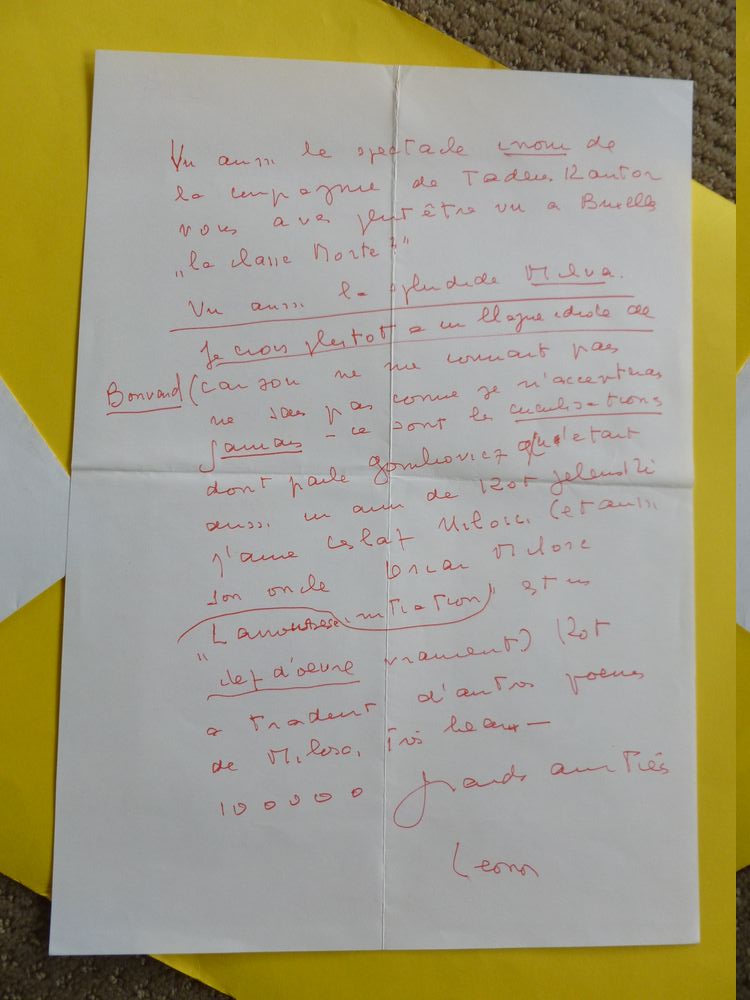 Vu aussi le spectacle inoui de
la compagnie de Tadeus Kantor
vous aves peut être vu a Bruxelles
„la classe Morte?"
Vu aussi la splendide Milva.
Je crois plutot a un blague idiote de
Bonvard (car zou ne me connait pas
ne sais pas comme je n'accepterais
jamais – ce sont les cuculisations
dont parle Gombovicz qui etait
aussi un ami de Kot Jelenski
j'aime Ceslaf Milosc. (et aussi
son oncle Oscar Milosc
"L'amoureuse initiation" est un
chef d'oevre vraiment) Kot
a traduit d'autres poemes
de Milosc. Très beaux –
100000 grands amitiés
Leonor